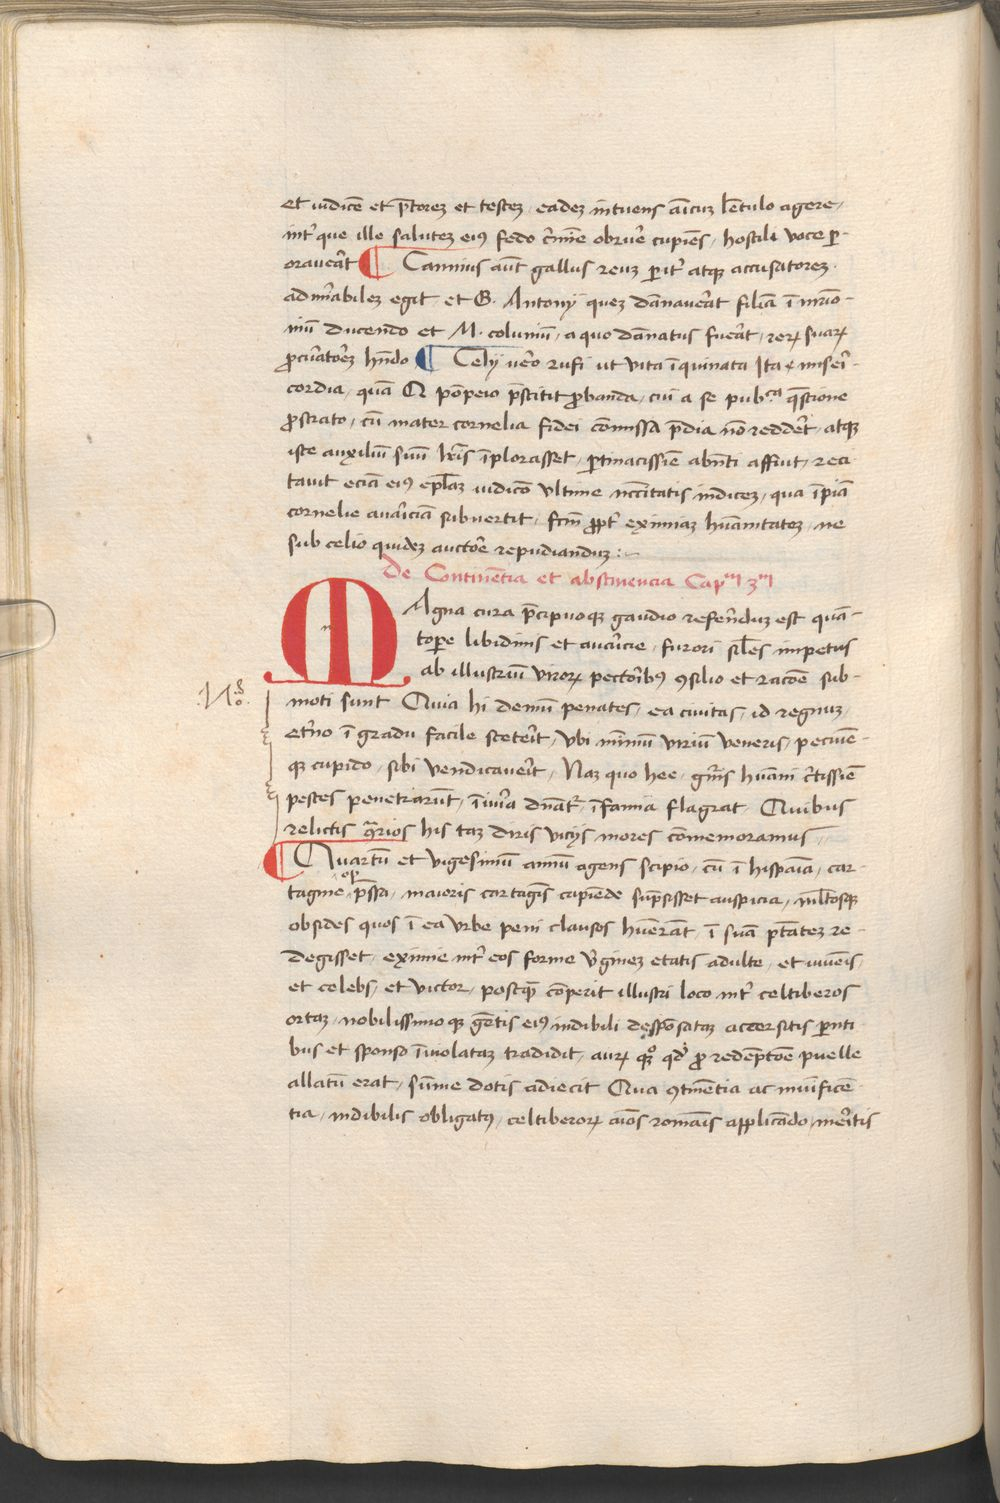 et iudicē et p̄torez et testez, eadez intuens amicuz lētulo agere,
int̄ que ille salutez eiꝰ fedo c̄mīe obruē cupiēs, hostili voce ꝑ-
oraveāt ¶ Cannius aūt gallus reuz ꝑit̄ atqꝫ accusatorez
admīabilez egit, et G. Antonij quez dānaveāt filiā ī mr̄io-
niū ducendo et M. coluniū, a quo dānatus fueāt, reꝝ suaꝝ
ꝓcuātorez hn̄do ¶ Celij vēo rufi ut vita īquinata Ita miseī-
cordia, quā Q pōpeio p̄stitit ꝓbanda, cui a se pub.ca q̄stione
ꝓstrato, cū mater cornelia fidei cōmissa p̄dia nō reddēt, atqꝫ
iste auxiliū suū lr̄is īplorasset, ꝑtinacissīe abn̄ti affuit, reci
tavit eciā eiꝰ ep̄laz iudicō vltime nccītatis indicez, qua īpiā
cornelie avaīciā subvertit, fcm̄ ꝓpt̄ eximiaz hūanitatez, ne
sub celio quidez auctoē repudianduz :-
De Continētia et abstinencia Capm 3m
MAgna cura p̄cipuoqꝫ gaudio refēnduz est quā-
toꝑe libidinis et avaīcie, furori sīles impetus
ab illustriū viroꝝ pectoībꝰ ꝯsilio et racoē sub-
.No.
moti sunt Quia hi demū penates, ea civitas, id regnuz,
etn̄o ī gradu facile stetēīt, vbi mīmū viriū veneris, pecuīe-
qꝫ cupido, sibi vendicavēīt, Naz quo hee, gn̄is hūani c̄tissīe
pestes penetrarūt, īiuīa dn̄at̄, īfamia flagrat, Quibus
relictis q̄rios his taz diris vicijs mores cōmemoramus
¶ Quartū et vigesimū annū agens scipio, cū ī hispaīa, car
op
tagine, p̄ssa, maioris cartagīs capiēde sūp̄sisset auspicia, ml̄tosqꝫ
obsides quos ī ea vrbe peni clausos hūerāt, ī suā ptātez re-
degisset, eximie int̄ eos forme v̄ginez etatis adulte, et iuveīs,
et celebs, et victor, postq̄ cōperit illustri loco int̄ celtiberos
ortaz, nobilissimoqꝫ gētis eiꝰ indibili despōsataz accersitis ꝑnti
bus et sponso īviolataz tradidit, auꝝ qꝫo qd̄ ꝓ redēptōe puelle
allatū erat, sūme dotis adiecit Qua ꝯtinētia ac muīficē
tia, indibilis obligatꝰ, celtiberoꝝ aīos romāis applicādo, mēitis